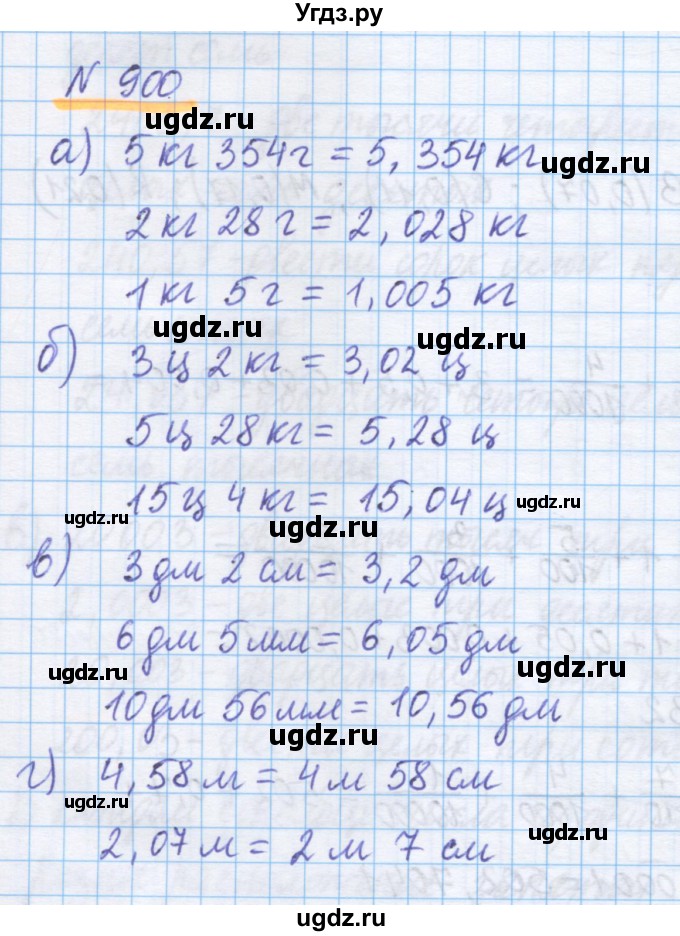 Угдз.ру
N 900
ugdz.ru
а) 5 кг 354 г = 5,354 кг
ugdz.ru
2 кг 28 г = 2,028 кг
1 кг 5 г = 1,005 кг
ugdz.ru
ugdz.ru
б) 3 ц 2 кг = 3,02 ц
5 ц 28 кг = 5,28 ц
15 ц 4 кг = 15,04 ц
ugdz.ru
ugdz.ru
ugdz.ru
в) 3 дм 2 см = 3,2 дм
6 дм 5 мм = 6,05 дм
ugdz.ru
ugdz.ru
10 дм 56 мм = 10,56 дм
ugdz.ru
г) 4,58 м = 4 м 58 см
ugdz.ru
ugdz.ru
2,07 м = 2 м 7 см
ugdz.ru